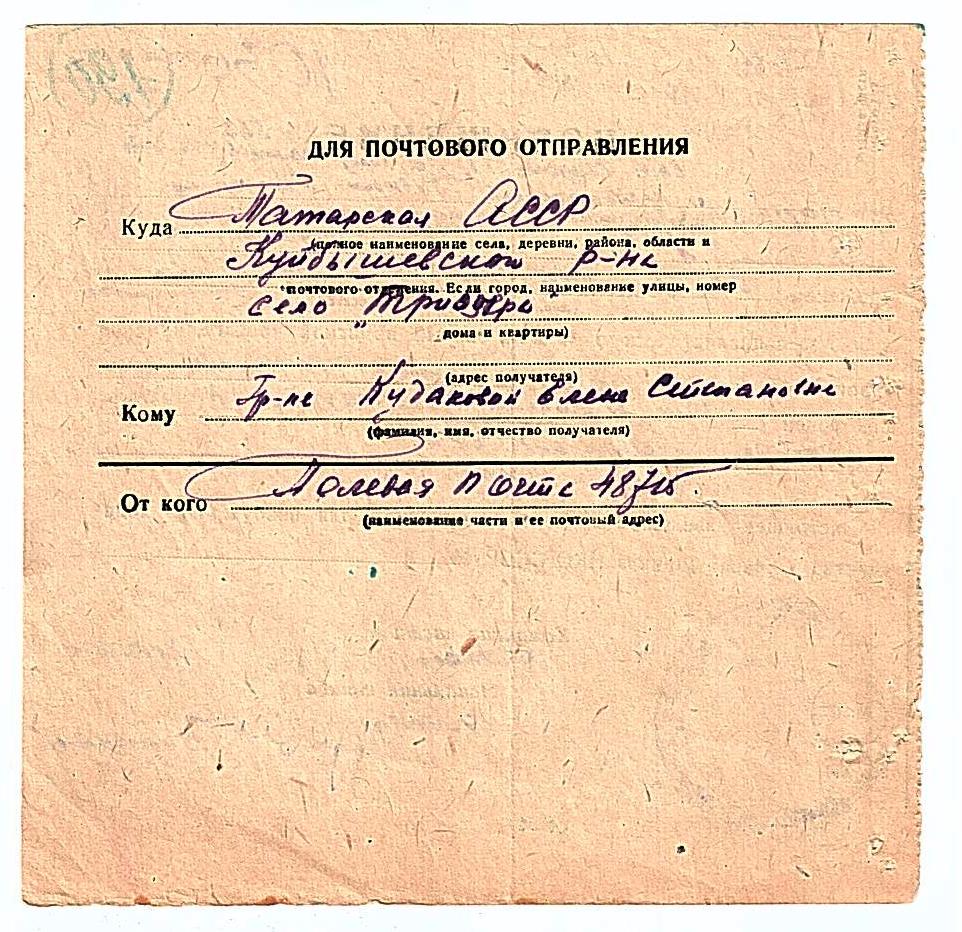 ДЛЯ ПОЧТОВОГО ОТПРАВЛЕНИЯ
Куда Татарская АССР
(полное наименование села, деревни, района, области и
Куйбышевский р-на
почтового отделения. Если город, наименование улицы, номер
село "Три озера"
дома и квартиры)
(адрес получателя)
Кому Гр-не Кудаковой Елене Степановне
(фамилия, имя, отчество получателя)
От кого Полевая почта
(наименование части и ее почтовый адрес)